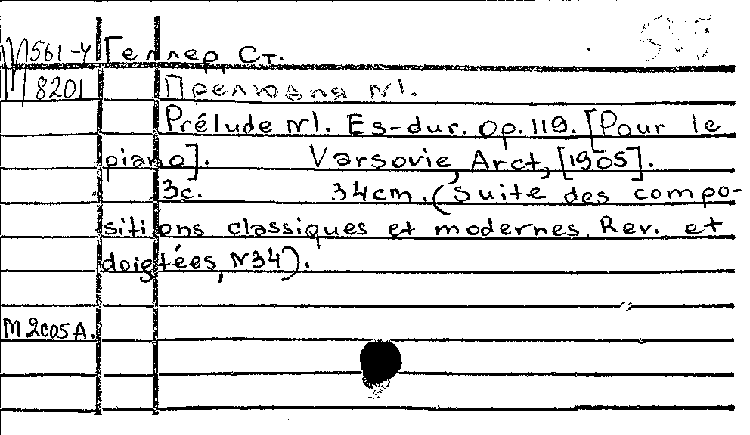 М561-4 Геллер, Ст.
8201 Прелюдия №1.
Prélude №1. Es-dur. Op.119. [Pour le
piano]. Varsovie, Arct, [1905].
3c. 34cm. (Suite des compo-
sitions classiques et modernes. Rev. et
doigtées, №34).
M2005A.